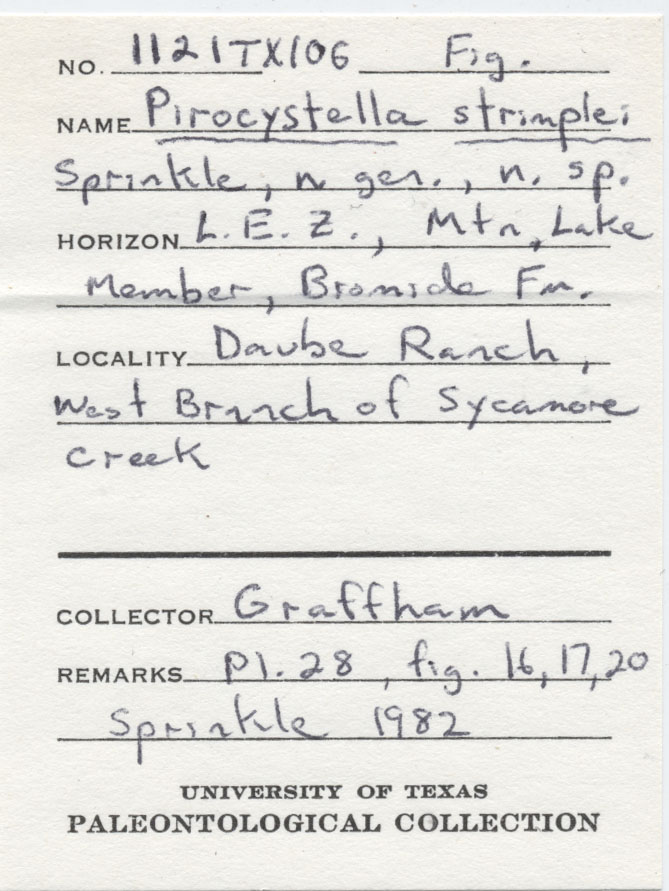 NO. 1121TX106 Fig.
NAME Pirocystella strimplei
Sprinkle, n gen., n. sp.
HORIZON L.E.Z., Mtn, Lake
Member, Bromide Fm.
LOCALITY Daube Ranch,
West Branch of Sycamore
Creek
COLLECTOR Graffham
REMARKS pl. 28, fig. 16, 17, 20
Sprinkle 1982
UNIVERSITY OF TEXAS
PALEONTOLOGICAL COLLECTION